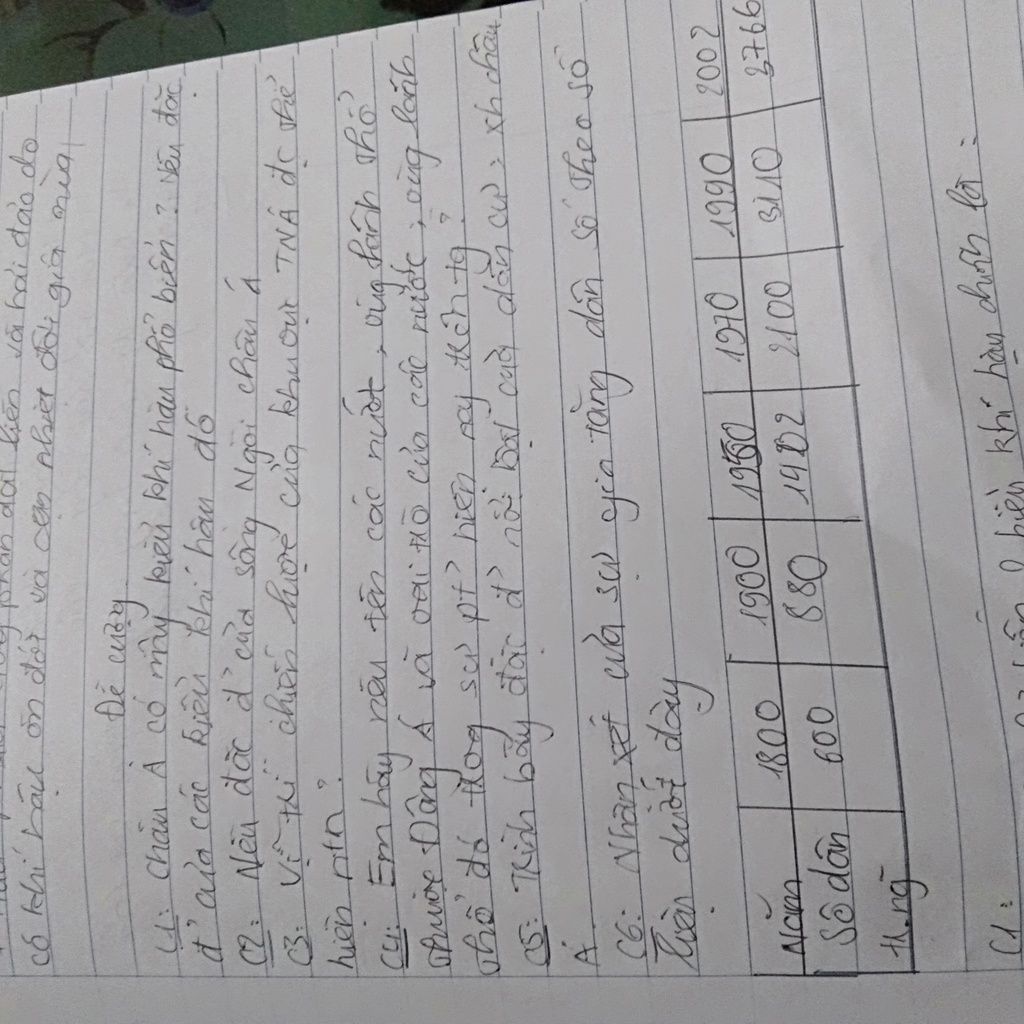 có khí hậu ôn đới và cận nhiệt đới gió mùa
Đề cương
C1: Châu Á có mấy kiểu khí hậu phổ biến? Nêu đặc
đ² của các kiểu khí hậu đó
C2: Nêu đặc đ² của sông Ngòi châu Á
C3: Vị trí chiến lược của khu vực TNÁ đc thể
hiện ntn?
C4: Em hãy nêu tên các nước, vùng lãnh thổ
thuộc Đông Á và vai trò của các nước, vùng lãnh
thổ đó trong sự pt² hiện nay trên tg?
C5: Trình bày đặc đ² nổi bật của dân cư, xh châu
Á
C6: Nhận xét của sự gia tăng dân số theo số
liệu dưới đây
Năm 1800 1900 1950 1970 1990 2002
Số dân 600 880 1402 2100 3110 3766
tr.ng
C1:
kiểu khí hậu chính là: